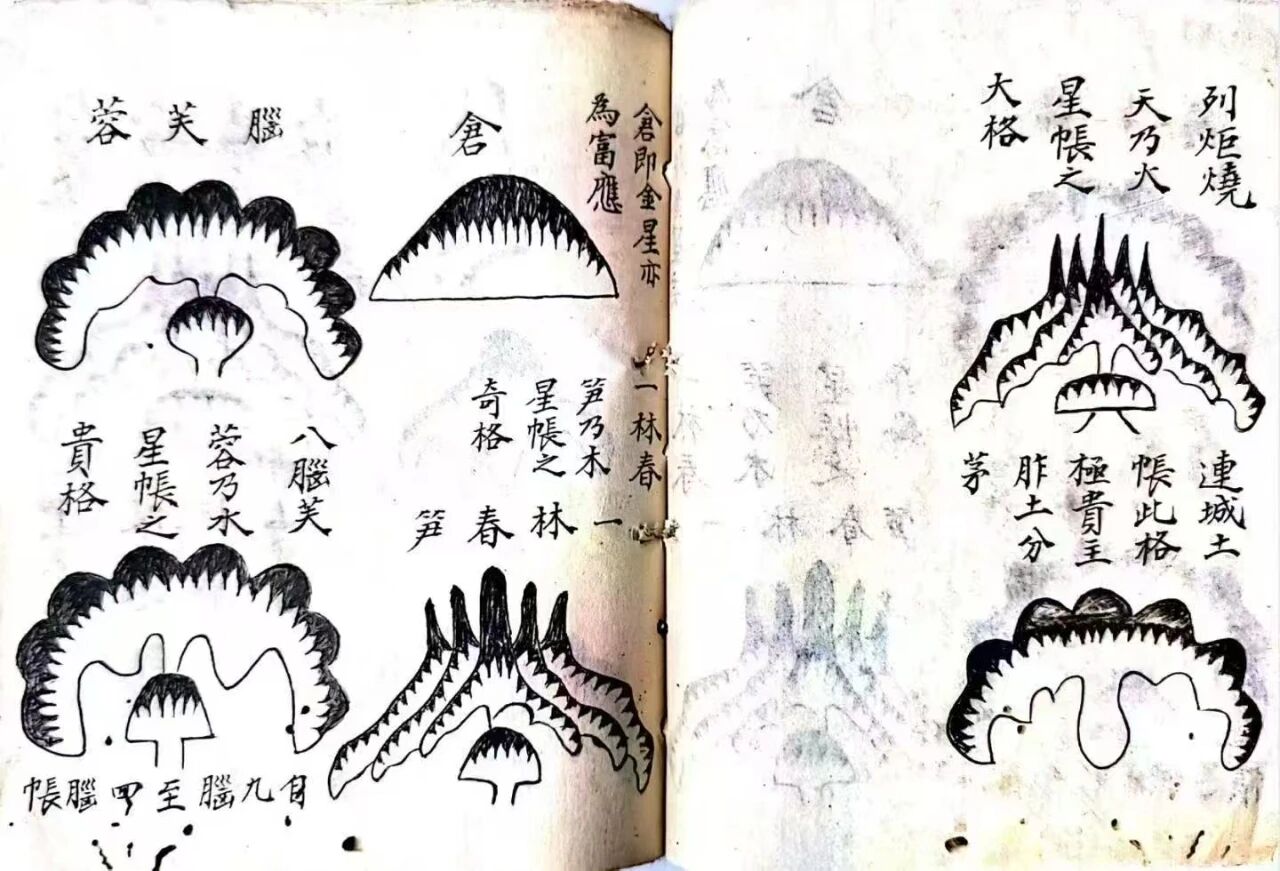 列炬燒
天乃火
星帳之
大格
連城土
帳此格
極貴主
胙土分
茅
倉即金星亦
為富應
倉
一林春
笋乃木
星帳之
奇格
一林春笋
腦芙蓉
八腦芙
蓉乃水
星帳之
貴格
自九腦至四腦帳